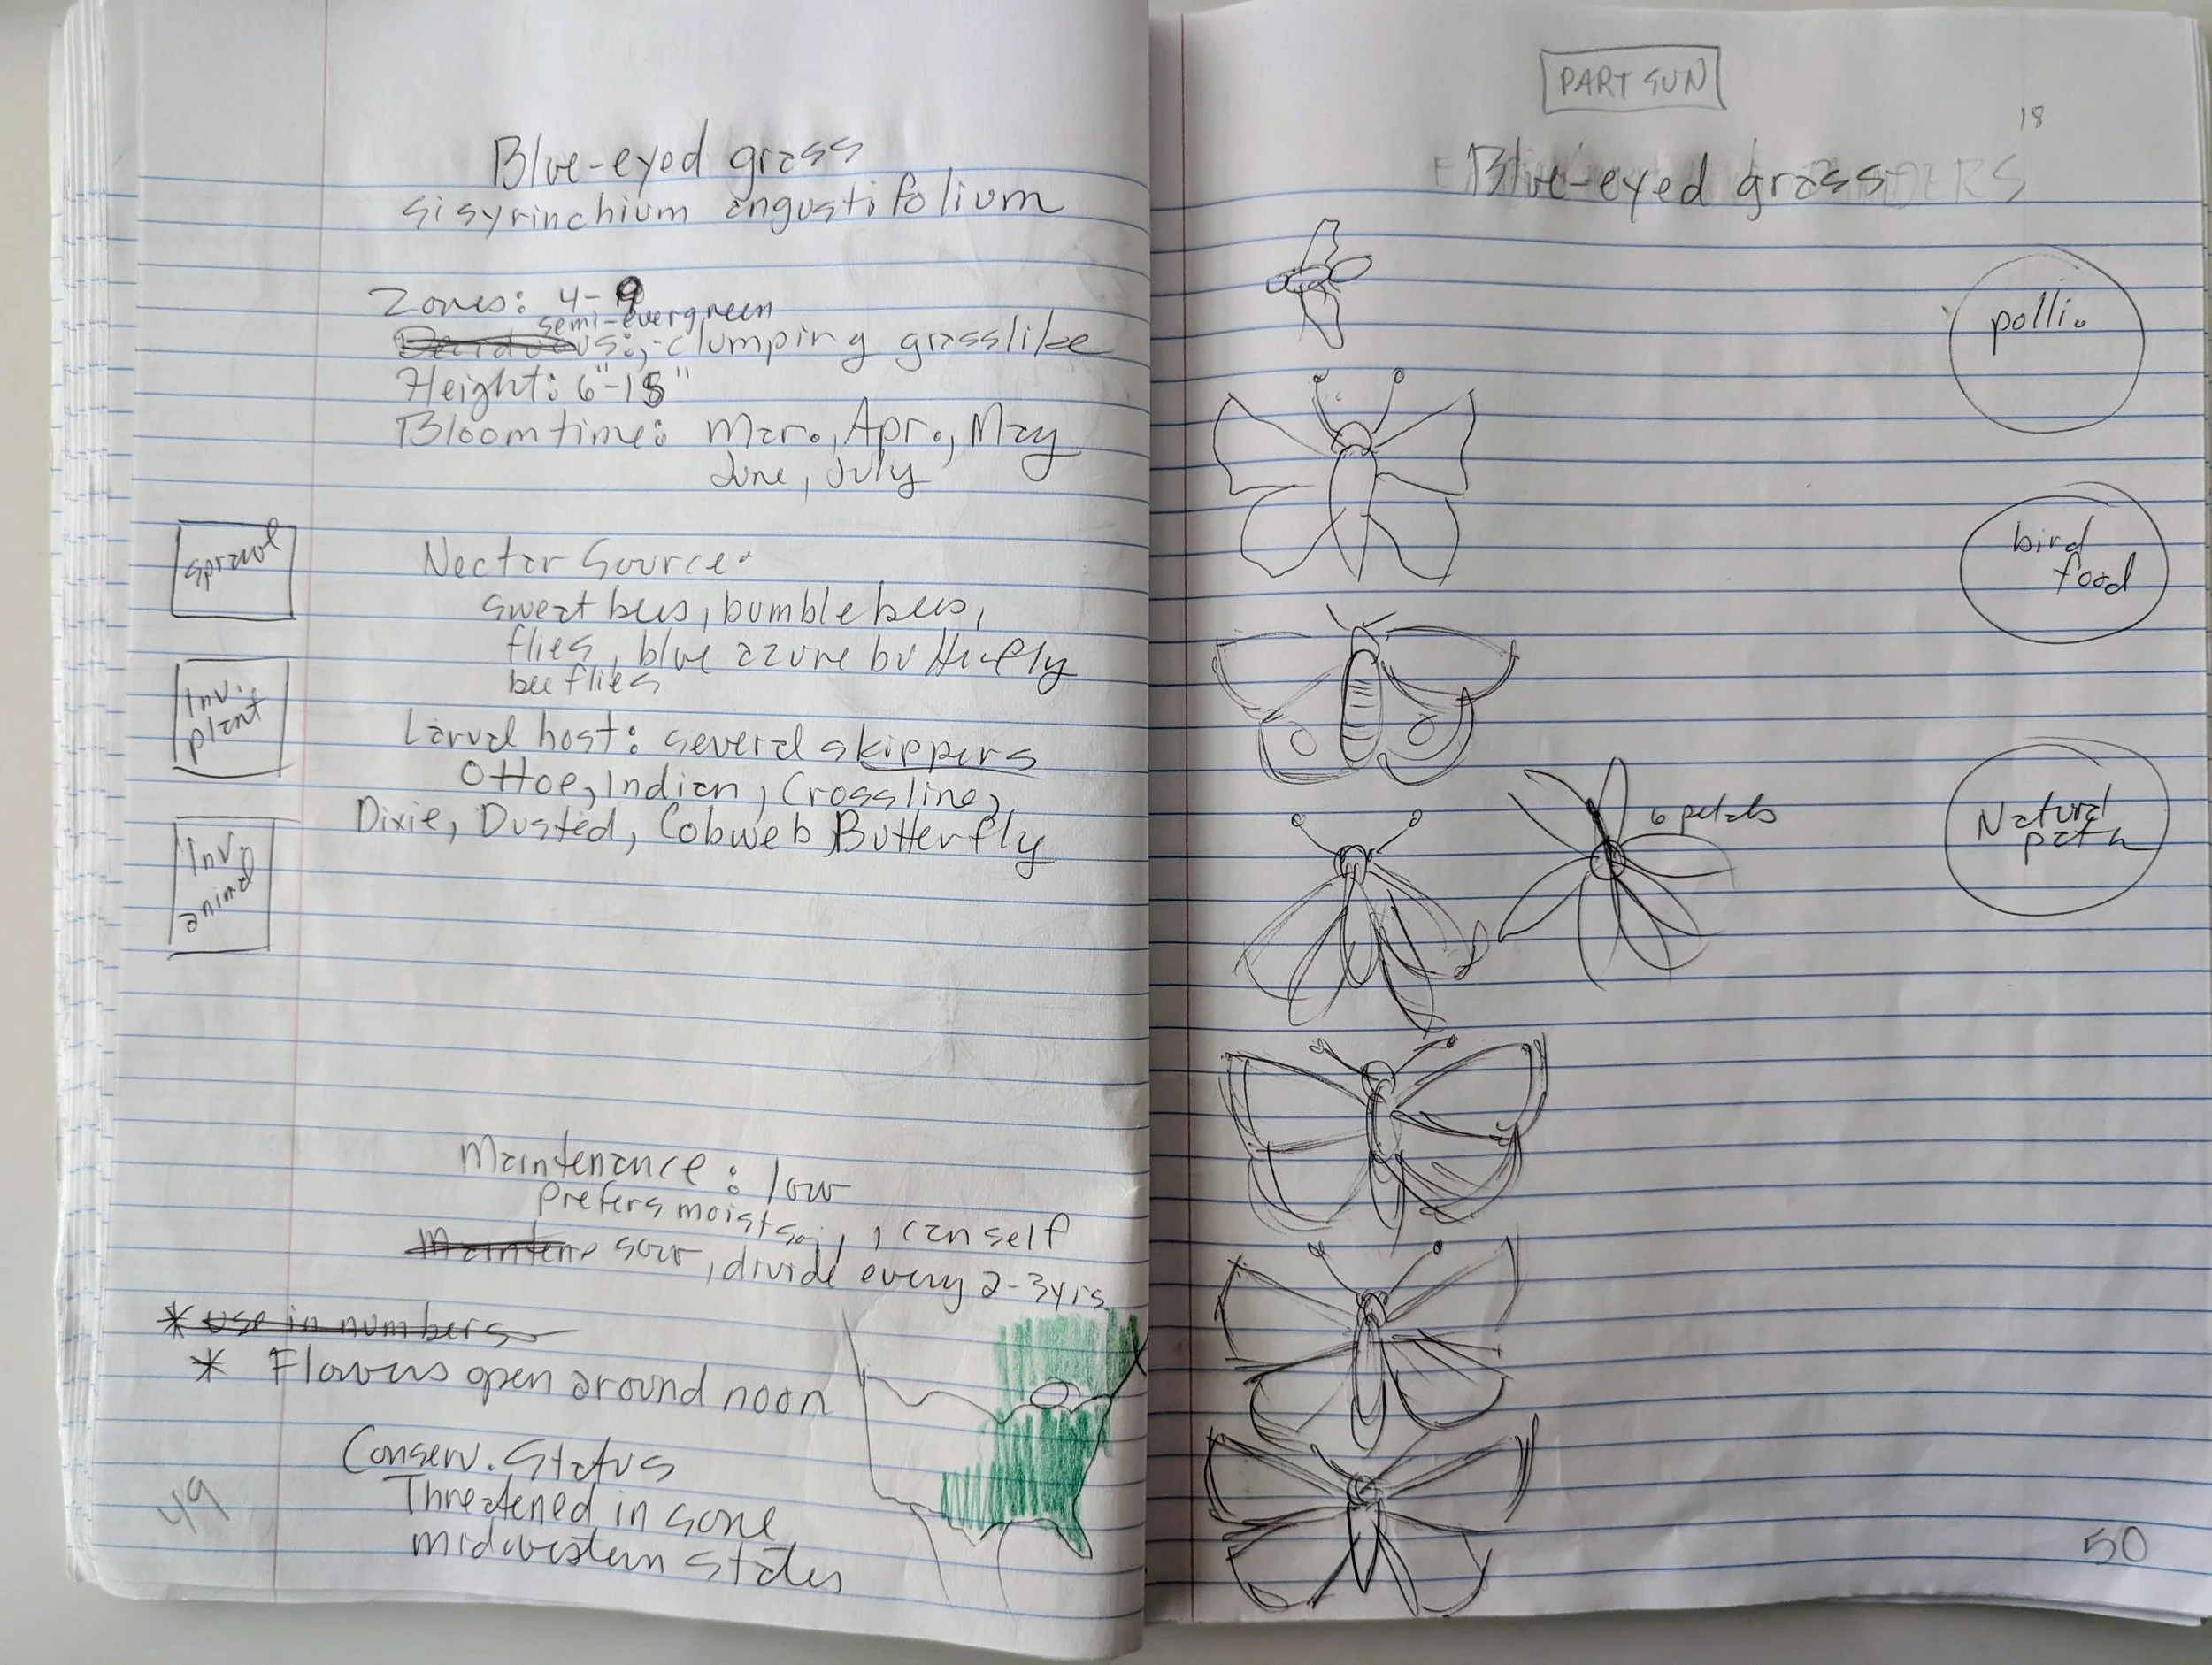 Blue-eyed grass
Sisyrinchium angustifolium
Zones: 4-9
semi-evergreen
Deciduous:, clumping grasslike
Height: 6"-18"
Bloom time: Mar., Apr., May
June, July
Sprawl
Nectar Source:
sweat bees, bumble bees,
flies, blue azure butterfly
bee flies
Inv. plant
Larval host: several skippers
Ottoe, Indian, Crossline,
Dixie, Dusted, Cobweb Butterfly
Inv. animal
Maintenance: low
prefers moist soil, can self
Mainten sow, divide every 2-3yrs
* use in numbers
* Flowers open around noon
Conserv. Status
Threatened in some
midwestern states
49
PART SUN
18
Blue-eyed grass
polli.
bird
food
6 petals
Natural
path
50